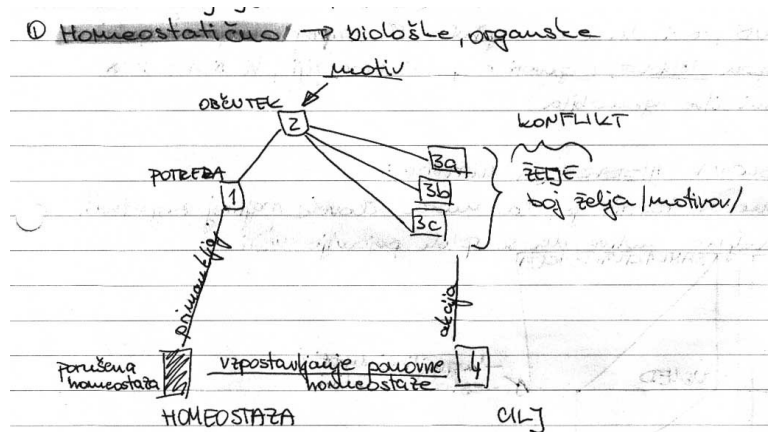 ① Homeostatično → biološke, organske
motiv
OBČUTEK
2
KONFLIKT
3a
POTREBA
1
3b
3c
ŽELJE
boj želja/motivov/
primanjkljaj
akcija
porušena
homeostaza
vzpostavljanje ponovne
homeostaze
4
HOMEOSTAZA
CILJ